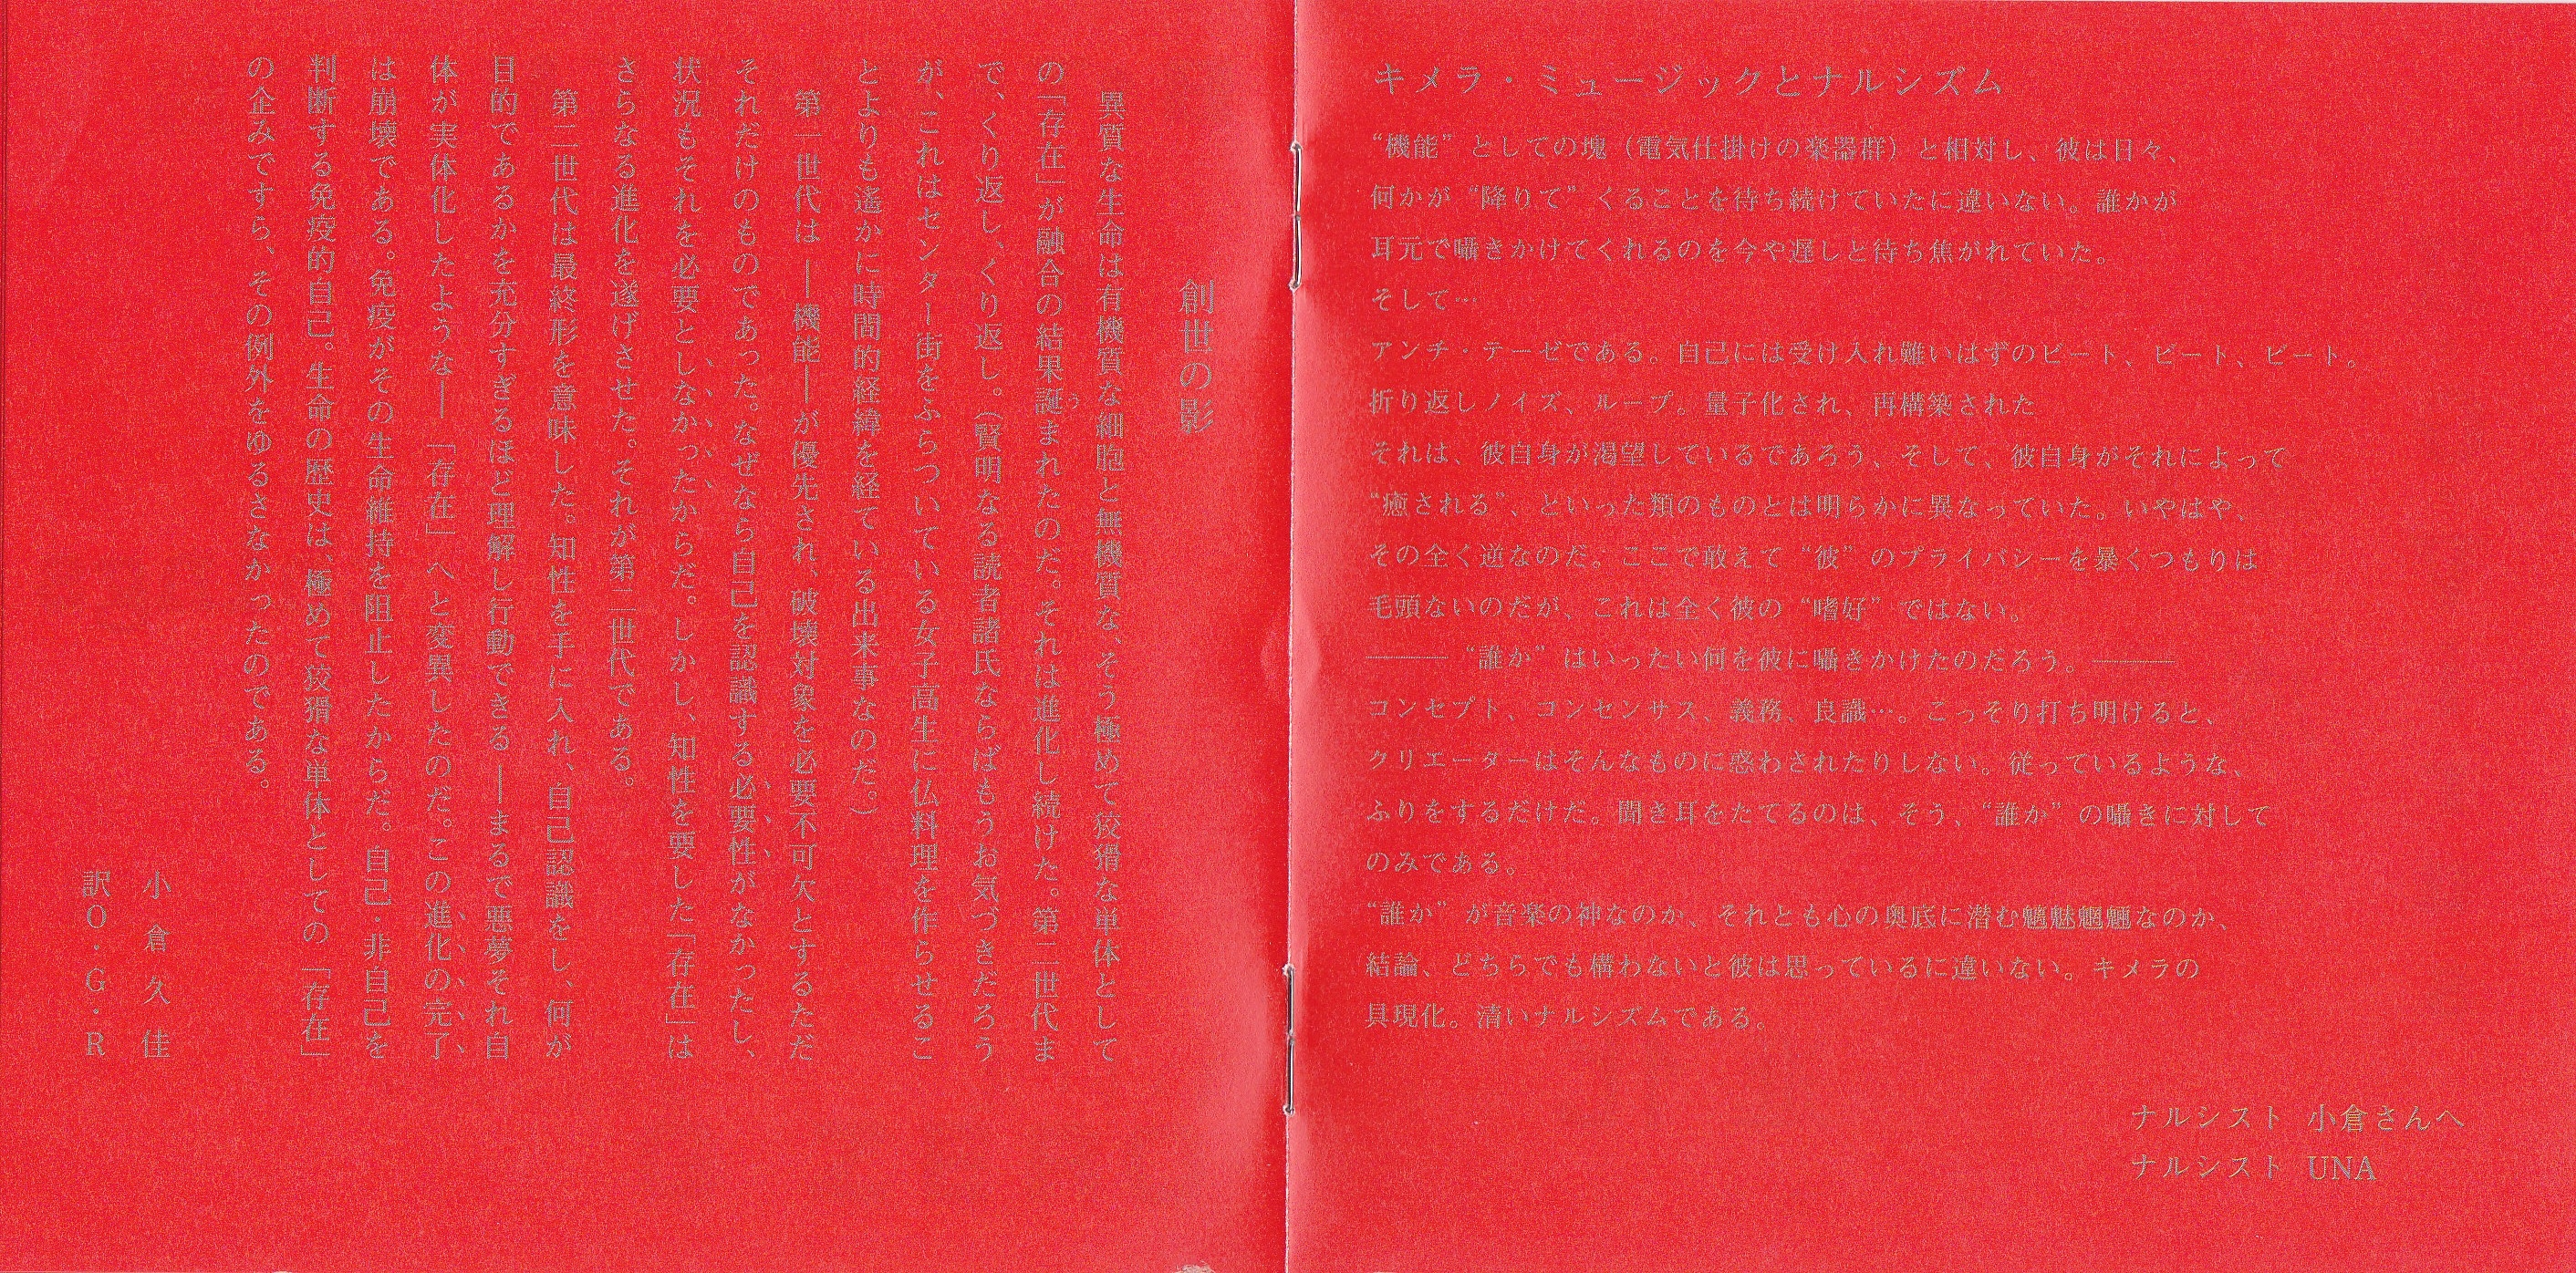 創世の影
異質な生命は有機質な細胞と無機質な、そう極めて狡猾な単体として
の「存在」が融合の結果誕まれたのだ。それは進化し続けた。第二世代ま
で、くり返し、くり返し。（賢明なる読者諸氏ならばもうお気づきだろう
が、これはセンター街をふらついている女子高生に仏料理を作らせるこ
とよりも遙かに時間的経緯を経ている出来事なのだ。）
第一世代は ―機能― が優先され、破壊対象を必要不可欠とするただ
それだけのものであった。なぜなら自己を認識する必要性がなかったし、
状況もそれを必要としなかったからだ。しかし、知性を要した「存在」は
さらなる進化を遂げさせた。それが第二世代である。
第二世代は最終形を意味した。知性を手に入れ、自己認識をし、何が
目的であるかを充分すぎるほど理解し行動できる ―まるで悪夢それ自
体が実体化したような― 「存在」へと変異したのだ。この進化の完了
は崩壊である。免疫がその生命維持を阻止したからだ。自己・非自己を
判断する免疫的自己。生命の歴史は、極めて狡猾な単体としての「存在」
の企みですら、その例外をゆるさなかったのである。
小倉久佳
訳O・G・R
キメラ・ミュージックとナルシズム
“機能” としての塊（電気仕掛けの楽器群）と相対し、彼は日々、
何かが “降りて” くることを待ち続けていたに違いない。誰かが
耳元で囁きかけてくれるのを今や遅しと待ち焦がれていた。
そして…
アンチ・テーゼである。自己には受け入れ難いはずのビート、ビート、ビート。
折り返しノイズ、ループ。量子化され、再構築された
それは、彼自身が渇望しているであろう、そして、彼自身がそれによって
“癒される”、といった類のものとは明らかに異なっていた。いやはや、
その全く逆なのだ。ここで敢えて “彼” のプライバシーを暴くつもりは
毛頭ないのだが、これは全く彼の “嗜好” ではない。
――― “誰か” はいったい何を彼に囁きかけたのだろう。―――
コンセプト、コンセンサス、義務、良識…。こっそり打ち明けると、
クリエーターはそんなものに惑わされたりしない。従っているような、
ふりをするだけだ。聞き耳をたてるのは、そう、“誰か” の囁きに対して
のみである。
“誰か” が音楽の神なのか、それとも心の奥底に潜む魑魅魍魎なのか、
結論、どちらでも構わないと彼は思っているに違いない。キメラの
具現化。清いナルシズムである。
ナルシスト 小倉さんへ
ナルシスト UNA